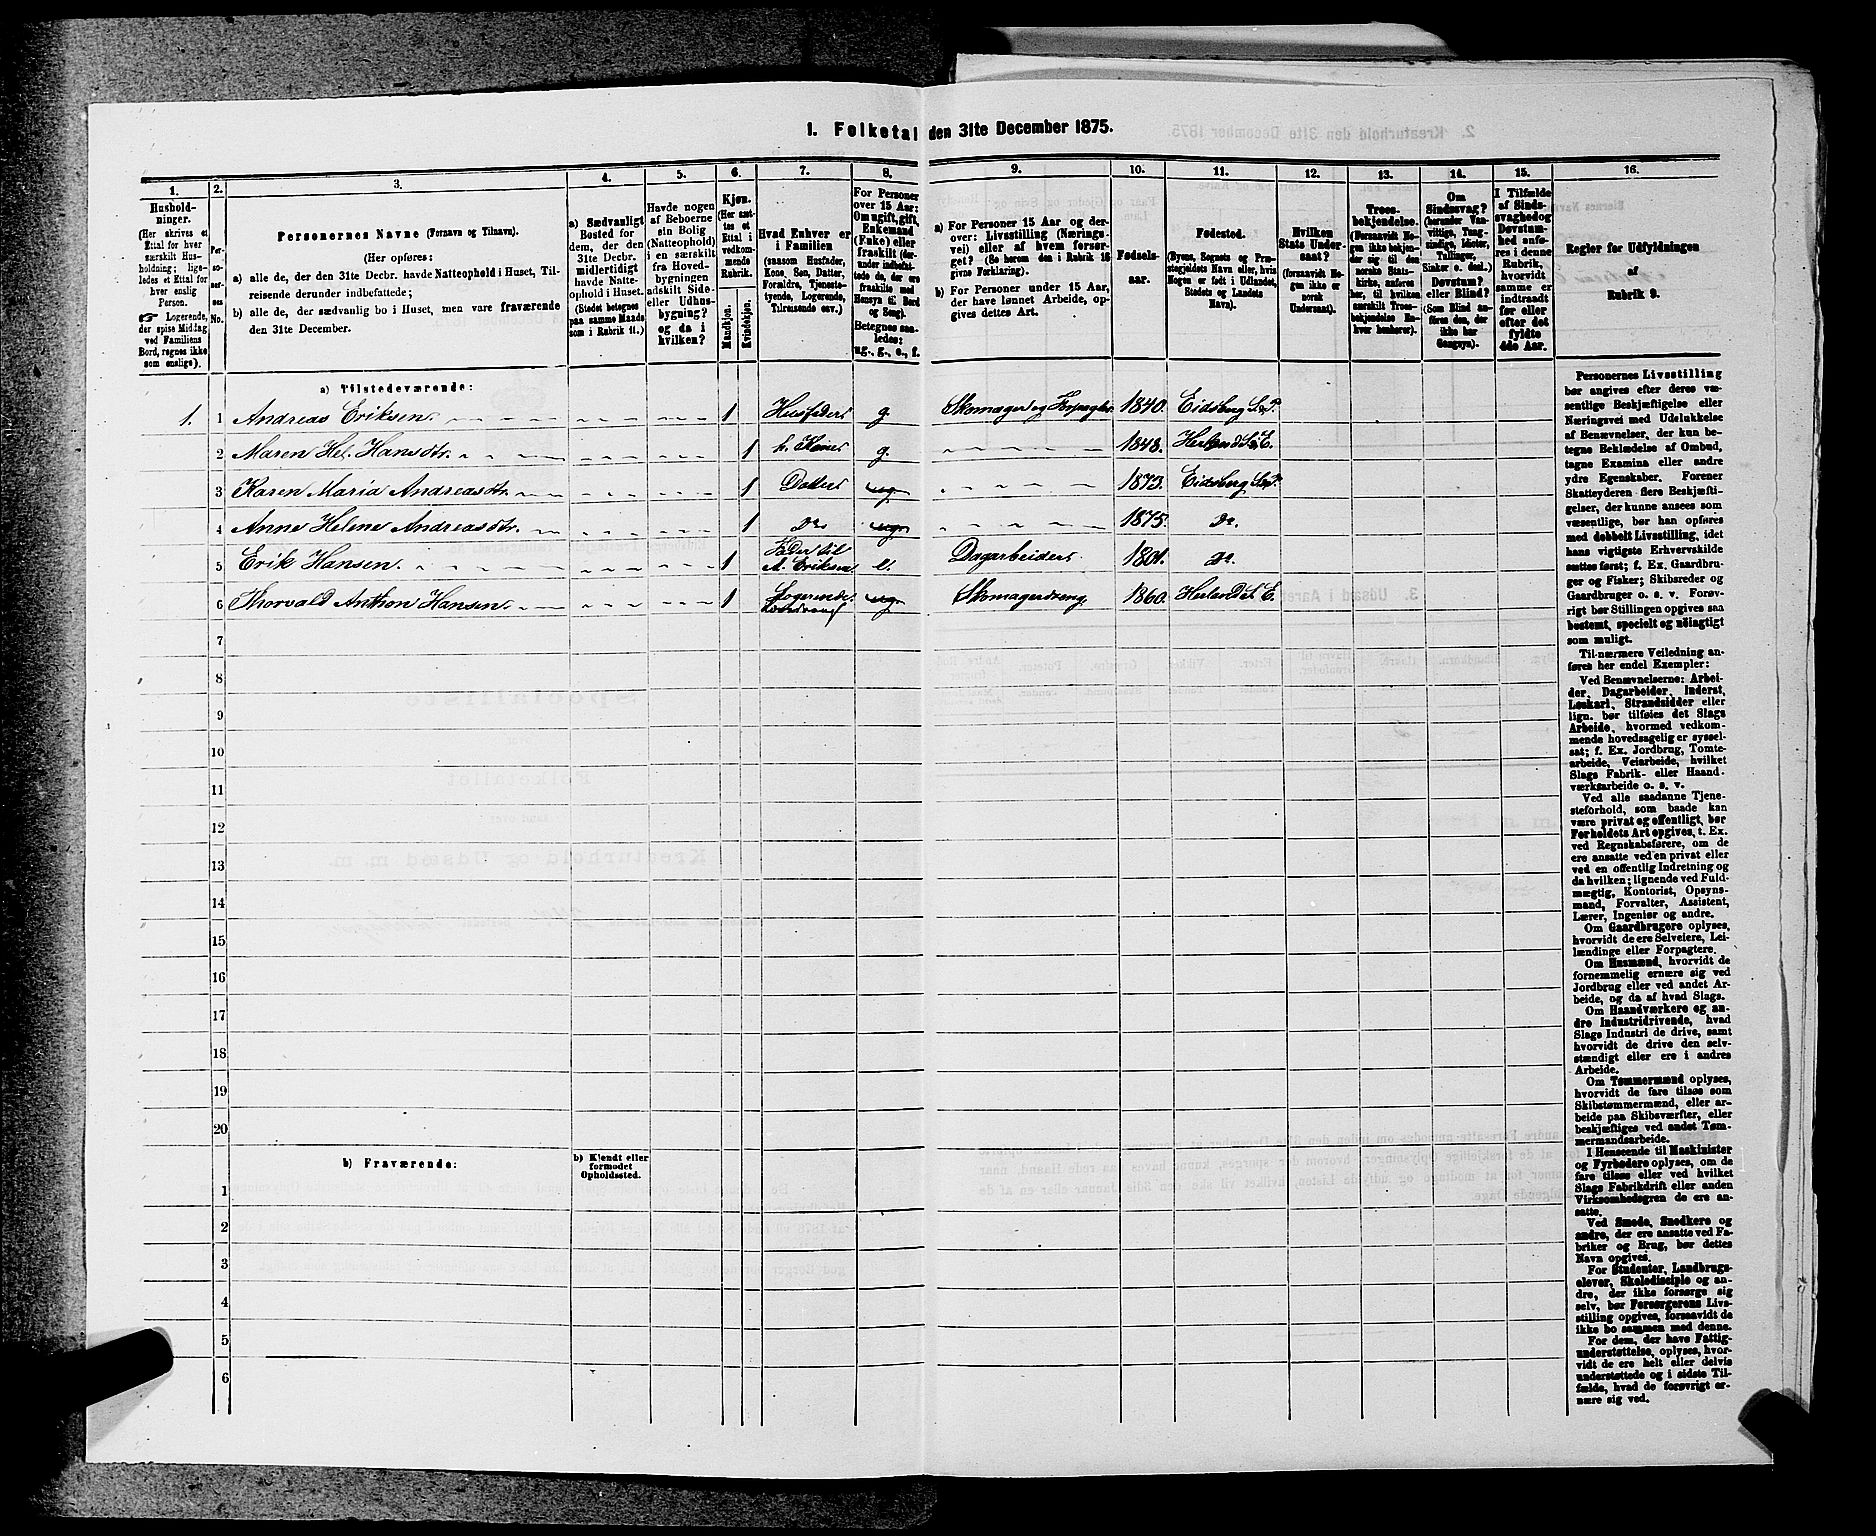 1. Folketal den 31te December 1875.
1.
2.
3.
4.
5.
6.
7.
8.
9.
10.
11.
12.
13.
14.
15.
16.
Hushold-
ninger.
(Her skrives et
Ettal for hver
særskilt Hus-
holdning; lige-
ledes et Ettal for
hver enslig
Person.
☞ Logerende,
der spise Middag
ved Familiens
Bord, regnes ikke
som enslige).
Per-
so-
ner-
nes
No.
Personernes Navne (Fornavn og Tilnavn).
(Her opføres:
a) alle de, der den 31te Decbr. havde Natteophold i Huset, Til-
reisende derunder indbefattede;
b) alle de, der sædvanlig bo i Huset, men vare fraværende
den 31te December.
a) Sædvanligt
Bosted for
dem, der den
31te Decbr.
midlertidigt
havde Natte-
ophold i Huset.
(Stedet betegnes
paa samme Maade
som i Rubrik 11.)
Havde nogen
af Beboerne
sin Bolig
(Natteophold)
i en særskilt
fra Hoved-
bygningen
adskilt Side-
eller Udhus-
bygning?
og da i
hvilken?
Kjøn.
(Her sæt-
tes et
Ettal i
vedkom-
mende
Rubrik.
Mandkjøn.
Kvindekjøn.
Hvad Enhver er
i Familien
(saasom Husfader,
Kone, Søn, Datter,
Forældre, Tjeneste-
tyende, Logerende,
Tilreisende osv.)
For Personer
over 15 Aar:
Om ugift, gift,
Enkemand
(Enke) eller
fraskilt (der-
under indbefat-
tede de, der ere
fraskilte med
Hensyn til Bord
og Seng).
Betegnes saa-
ledes:
ug., g., e., f.
a) For Personer 15 Aar og der-
over: Livsstilling (Nærings-
vei) eller af hvem forsør-
get? (Se herom den i Rubrik 16
givne Forklaring).
b) For Personer under 15 Aar,
der have lønnet Arbeide, op-
gives dettes Art.
Fødsels-
aar.
Fødested.
(Byens, Sognets og Præ-
stegjeldets Navn eller, hvis
Nogen er født i Udlandet,
Stedets og Landets
Navn).
Hvilken
Stats Under-
saat?
(forsaavidt No-
gen ikke er
norsk
Undersaat).
Troes-
bekjendelse.
(Forsaavidt No-
gen ikke bekjen-
der sig til den
norske Stats-
kirke, anføres
her, til hvilken
særskilt Troes-
bekjendelse En-
hver henhører).
Om
Sindssvag?
(herunder Van-
vittige, Tung-
sindige, Idioter,
Tullinger,
Sinker o. desl.)
Døvstum?
eller Blind?
(Som Blind an-
føres den, der
ikke har
Gangsyn).
I Tilfælde
af Sinds-
svaghed og
Døvstum-
hed anfø-
res i denne
Rubrik,
hvorvidt
samme er
indtraadt
før eller
efter det
fyldte
4de Aar.
Regler for Udfyldningen
af
Rubrik 9.
a) Tilstedeværende:
1. 1 Andreas Eriksen. 1 Husfader g. Skomager og Forpagter 1840. Eidsberg S&P.
2 Maren Hel. Hansdtr. 1 h. Kone g. 1848. Herland S. E.
3 Karen Maria Andreasdtr. 1 Datter ug. 1873. Eidsberg S&P.
4 Anne Helene Andreasdtr. 1 Do ug. 1875. Do.
5 Erik Hansen. 1 Fader til A. Eriksen. e. Dagarbeider 1801. Do.
6 Thorvald Anthon Hansen. 1 Logerende. ug. Skomagerdreng 1860. Herland S. E.
7
8
9
10
11
12
13
14
15
16
17
18
19
20
b) Fraværende:
b) Kjendt eller
formodet
Opholdssted.
1
2
3
4
5
6
Personernes Livsstilling
bør angives efter deres væ-
sentlige Beskjæftigelse eller
Næringsvei med Udelukkelse
af Benævnelser, der kun be-
tegne Beklædelse af Ombud,
tagne Examina eller andre
ydre Egenskaber. Forener
Skatteyderen flere Beskjæfti-
gelser, der kunne ansees som
væsentlige, bør han opføres
med dobbelt Livsstilling, idet
hans vigtigste Erhvervskilde
sættes først; f. Ex. Gaardbru-
ger og Fisker; Skibsreder og
Gaardbruger o. s. v. Forøv-
rigt bør Stillingen opgives saa
bestemt, specielt og nøiagtigt
som muligt.
Til nærmere Veiledning an-
føres her endel Exempler:
Ved Benævnelserne: Arbei-
der, Dagarbeider, Inderst,
Løskarl, Strandsidder eller
lign. bør tilføies det Slags
Arbeide, hvormed vedkom-
mende hovedsagelig er syssel-
sat; f. Ex. Jordbrug, Tomte-
arbeide, Veiarbeide, hvilket
Slags Fabrik- eller Haand-
værksarbeide o. s. v.
Ved alle saadanne Tjene-
steforhold, som baade kan
være privat og offentligt, bør
Forholdets Art opgives, t. Ex.
ved Regnskabsførere, om de
ere ansatte ved en privat eller
ved en offentlig Indretning og
da hvilken; lignende ved Fuld-
mægtig, Kontorist, Opsyns-
mand, Forvalter, Assistent,
Lærer, Ingeniør og andre.
Om Gaardbrugere oplyses,
hvorvidt de ere Selveiere, Lei-
lændinge eller Forpagtere.
Om Husmænd, hvorvidt de
fornemmelig ernære sig ved
Jordbrug eller ved andet Ar-
beide, og da af hvad Slags.
Om Haandværkere og an-
dre Industridrivende, hvad
Slags Industri de drive, samt
hvorvidt de drive den selv-
stændigt eller ere i andres
Arbeide.
Om Tømmermænd oplyses,
hvorvidt de fare tilsøs som
Skibstømmermænd, eller ar-
beide paa Skibsværfter, eller
beskjæftiges ved andet Tøm-
mermandsarbeide.
I Henseende til Maskinister
og Fyrbødere oplyses, om de
fare tilsøs eller ved hvilket
Slags Fabrikdrift eller anden
Virksomhedsgren de ere an-
satte.
Ved Smede, Snedkere og
andre, der ere ansatte ved Fa-
briker og Brug, bør dettes
Navn opgives.
For Studenter, Landbrugs-
elever, Skoledisciple og an-
dre, der ikke forsørge sig
selv, bør Forsørgerens Livs-
stilling opgives, forsaavidt de
ikke bo sammen med denne.
For dem, der have Fattig-
understøttelse, oplyses, hvor-
vidt de ere helt eller delvis
understøttede og i sidste Til-
fælde, hvad de forøvrigt er-
nære sig ved.